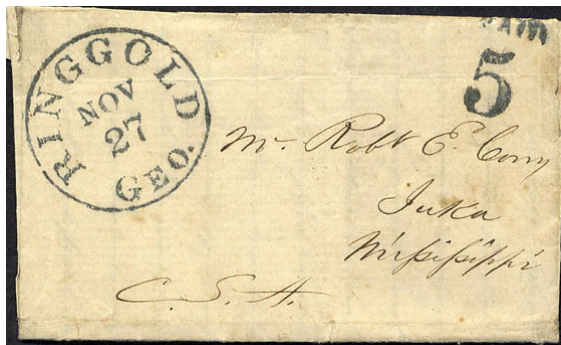 RINGGOLD
GEO.
NOV
27
PAID
5
Mr. Robt E. Cony
Iuka
Missisippi
C. S. A.